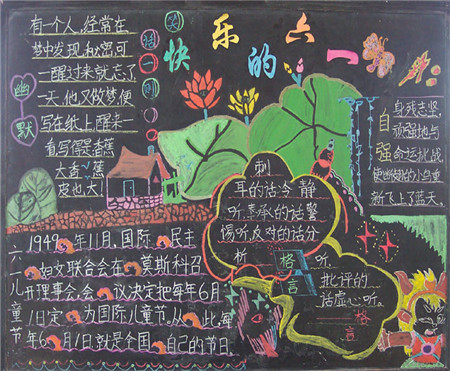 快乐的六一
笑话一则
幽默
有一个人,经常在
梦中发现秘密,可
一醒过来就忘了
一天,他又做梦便
写在纸上,醒来一
看写得是香蕉
大香蕉
皮也大!
自强
身残志坚,
顽强地与
命运挑战,
的小鸟重
新飞上了蓝天。
刺
耳的话冷静
听,奉承的话警
惕听,反对的话分
析听,
批评的
话虚心听。
格言
——格言
六一儿童节
1949年11月,国际民主
妇女联合会在莫斯科召
开理事会,会议决定把每年6月
1日定为国际儿童节,从此,每
年6月1日就是全国自己的节日.